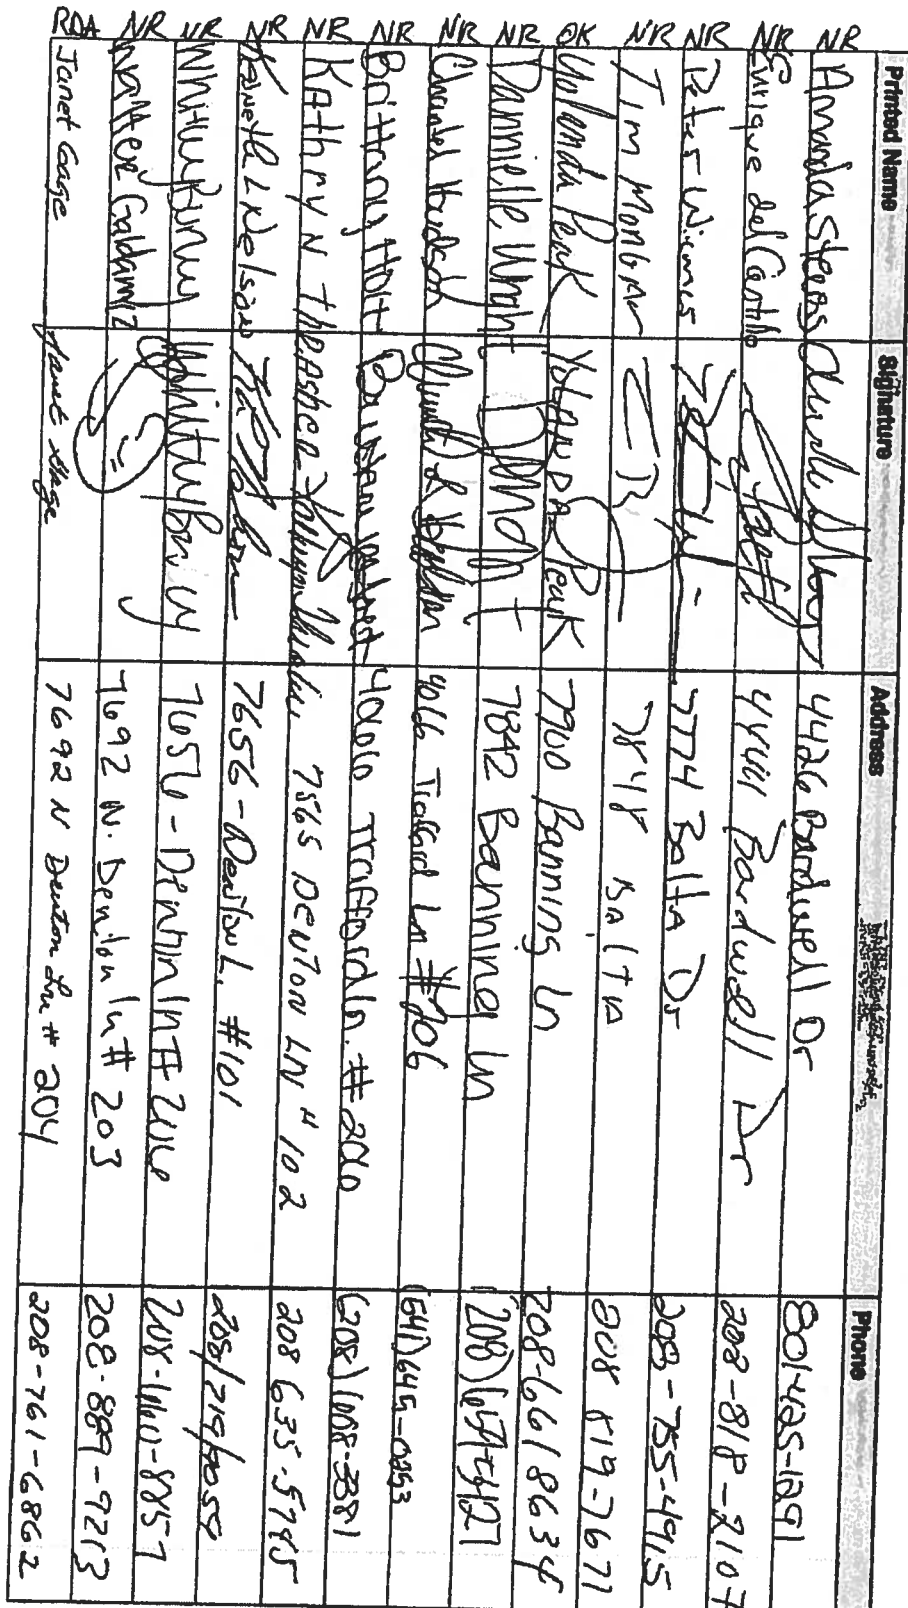 Printed Name Signature Address Phone
NR Amanda Stegs 4426 Bardwell Dr 801-425-1291
NR Enrique del Castillo 4444 Bardwell Dr 208-818-2107
NR Peter Wiemes 7774 Balta Dr 208-755-4915
NR Tim Morgan 7848 Balta 208 819-7671
OK Yolanda Peak Yolanda Peak 7900 Banning Ln 208-661 8634
NR Dannielle 7842 Banning Ln (208)
NR Chantel Hudson 4066 Trafford Ln #206 (541) 645-0253
NR Brittany Holt 4066 Trafford Ln. #206 (208) 668-3381
NR Kathryn Thrasher 7565 Denton LN #102 208 635-5785
NR Kenneth L Nelson 7656-Denton L. #101 208/219/9058
NR Whitney 7656-Denton Ln # 208-
NR Walter Galdamez 7692 N. Denton Ln # 203 208-889-9213
RDA Janet Gage Janet Gage 7692 N Denton Ln # 204 208-761-6862